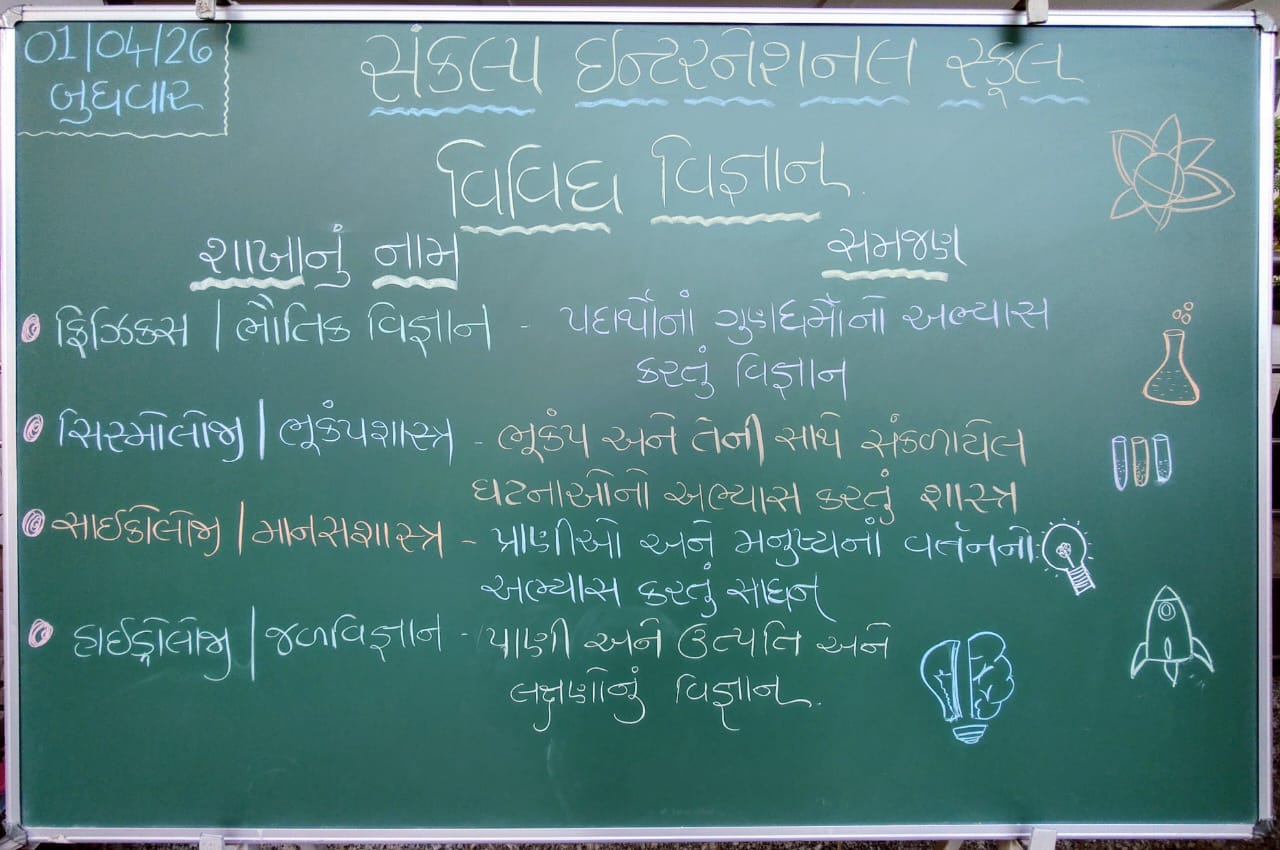 01/04/26
બુધવાર
સંકલ્પ ઇન્ટરનેશનલ સ્કૂલ
વિવિધ વિજ્ઞાન
શાખાનું નામ સમજણ
ફિઝિકસ | ભૌતિક વિજ્ઞાન - પદાર્થોનાં ગુણધર્મોનો અભ્યાસ
કરતું વિજ્ઞાન
સિસ્મોલોજી | ભૂકંપશાસ્ત્ર - ભૂકંપ અને તેની સાથે સંકળાયેલ
ઘટનાઓનો અભ્યાસ કરતું શાસ્ત્ર
સાઈકોલોજી | માનસશાસ્ત્ર - પ્રાણીઓ અને મનુષ્યનાં વર્તનનો
અભ્યાસ કરતું સાધન
હાઈડ્રોલોજી | જળવિજ્ઞાન - પાણી અને ઉત્પતિ અને
લક્ષણોનું વિજ્ઞાન.